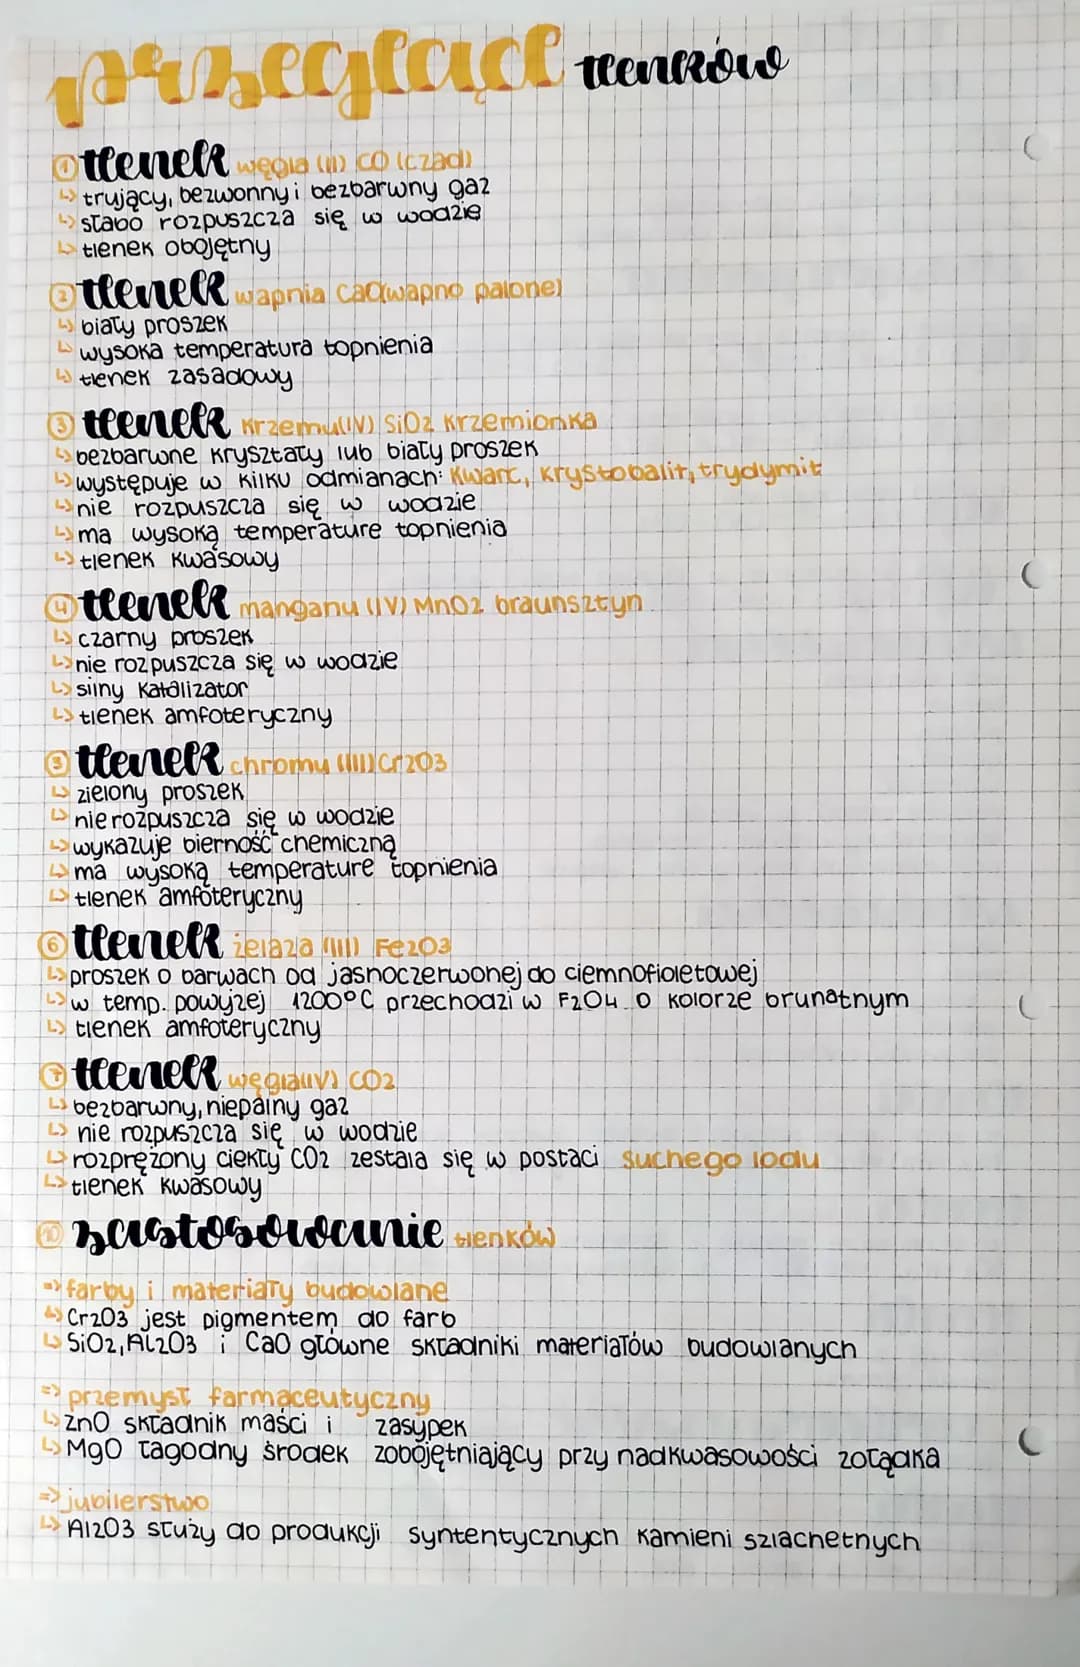 przegląd tlenków
① tlenek węgla (II) CO (czad)
↳ trujący, bezwonny i bezbarwny gaz
↳ słabo rozpuszcza się w wodzie
↳ tlenek obojętny
② tlenek wapnia CaO(wapno palone)
↳ biały proszek
↳ wysoka temperatura topnienia
↳ tlenek zasadowy
③ tlenek krzemu(IV) SiO2 krzemionka
↳ bezbarwne kryształy lub biały proszek
↳ występuje w kilku odmianach: kwarc, krystobalit, trydymit
↳ nie rozpuszcza się w wodzie
↳ ma wysoką temperature topnienia
↳ tlenek kwasowy
④ tlenek manganu (IV) MnO2 braunsztyn
↳ czarny proszek
↳ nie rozpuszcza się w wodzie
↳ silny katalizator
↳ tlenek amfoteryczny
⑤ tlenek chromu (III) Cr2O3
↳ zielony proszek
↳ nie rozpuszcza się w wodzie
↳ wykazuje bierność chemiczną
↳ ma wysoką temperature topnienia
↳ tlenek amfoteryczny
⑥ tlenek żelaza (III) Fe2O3
↳ proszek o barwach od jasnoczerwonej do ciemnofioletowej
↳ w temp. powyżej 1200°C przechodzi w F2O4 o kolorze brunatnym
↳ tlenek amfoteryczny
⑦ tlenek węgla(IV) CO2
↳ bezbarwny, niepalny gaz
↳ nie rozpuszcza się w wodzie
↳ rozprężony ciekły CO2 zestala się w postaci suchego lodu
↳ tlenek kwasowy
⑩ zastosowanie tlenków
=> farby i materiały budowlane
↳ Cr2O3 jest pigmentem do farb
↳ SiO2, Al2O3 i CaO główne składniki materiałów budowlanych
=> przemysł farmaceutyczny
↳ ZnO składnik maści i zasypek
↳ MgO łagodny środek zobojętniający przy nadkwasowości żołądka
=> jubilerstwo
↳ Al2O3 służy do produkcji syntentycznych kamieni szlachetnych